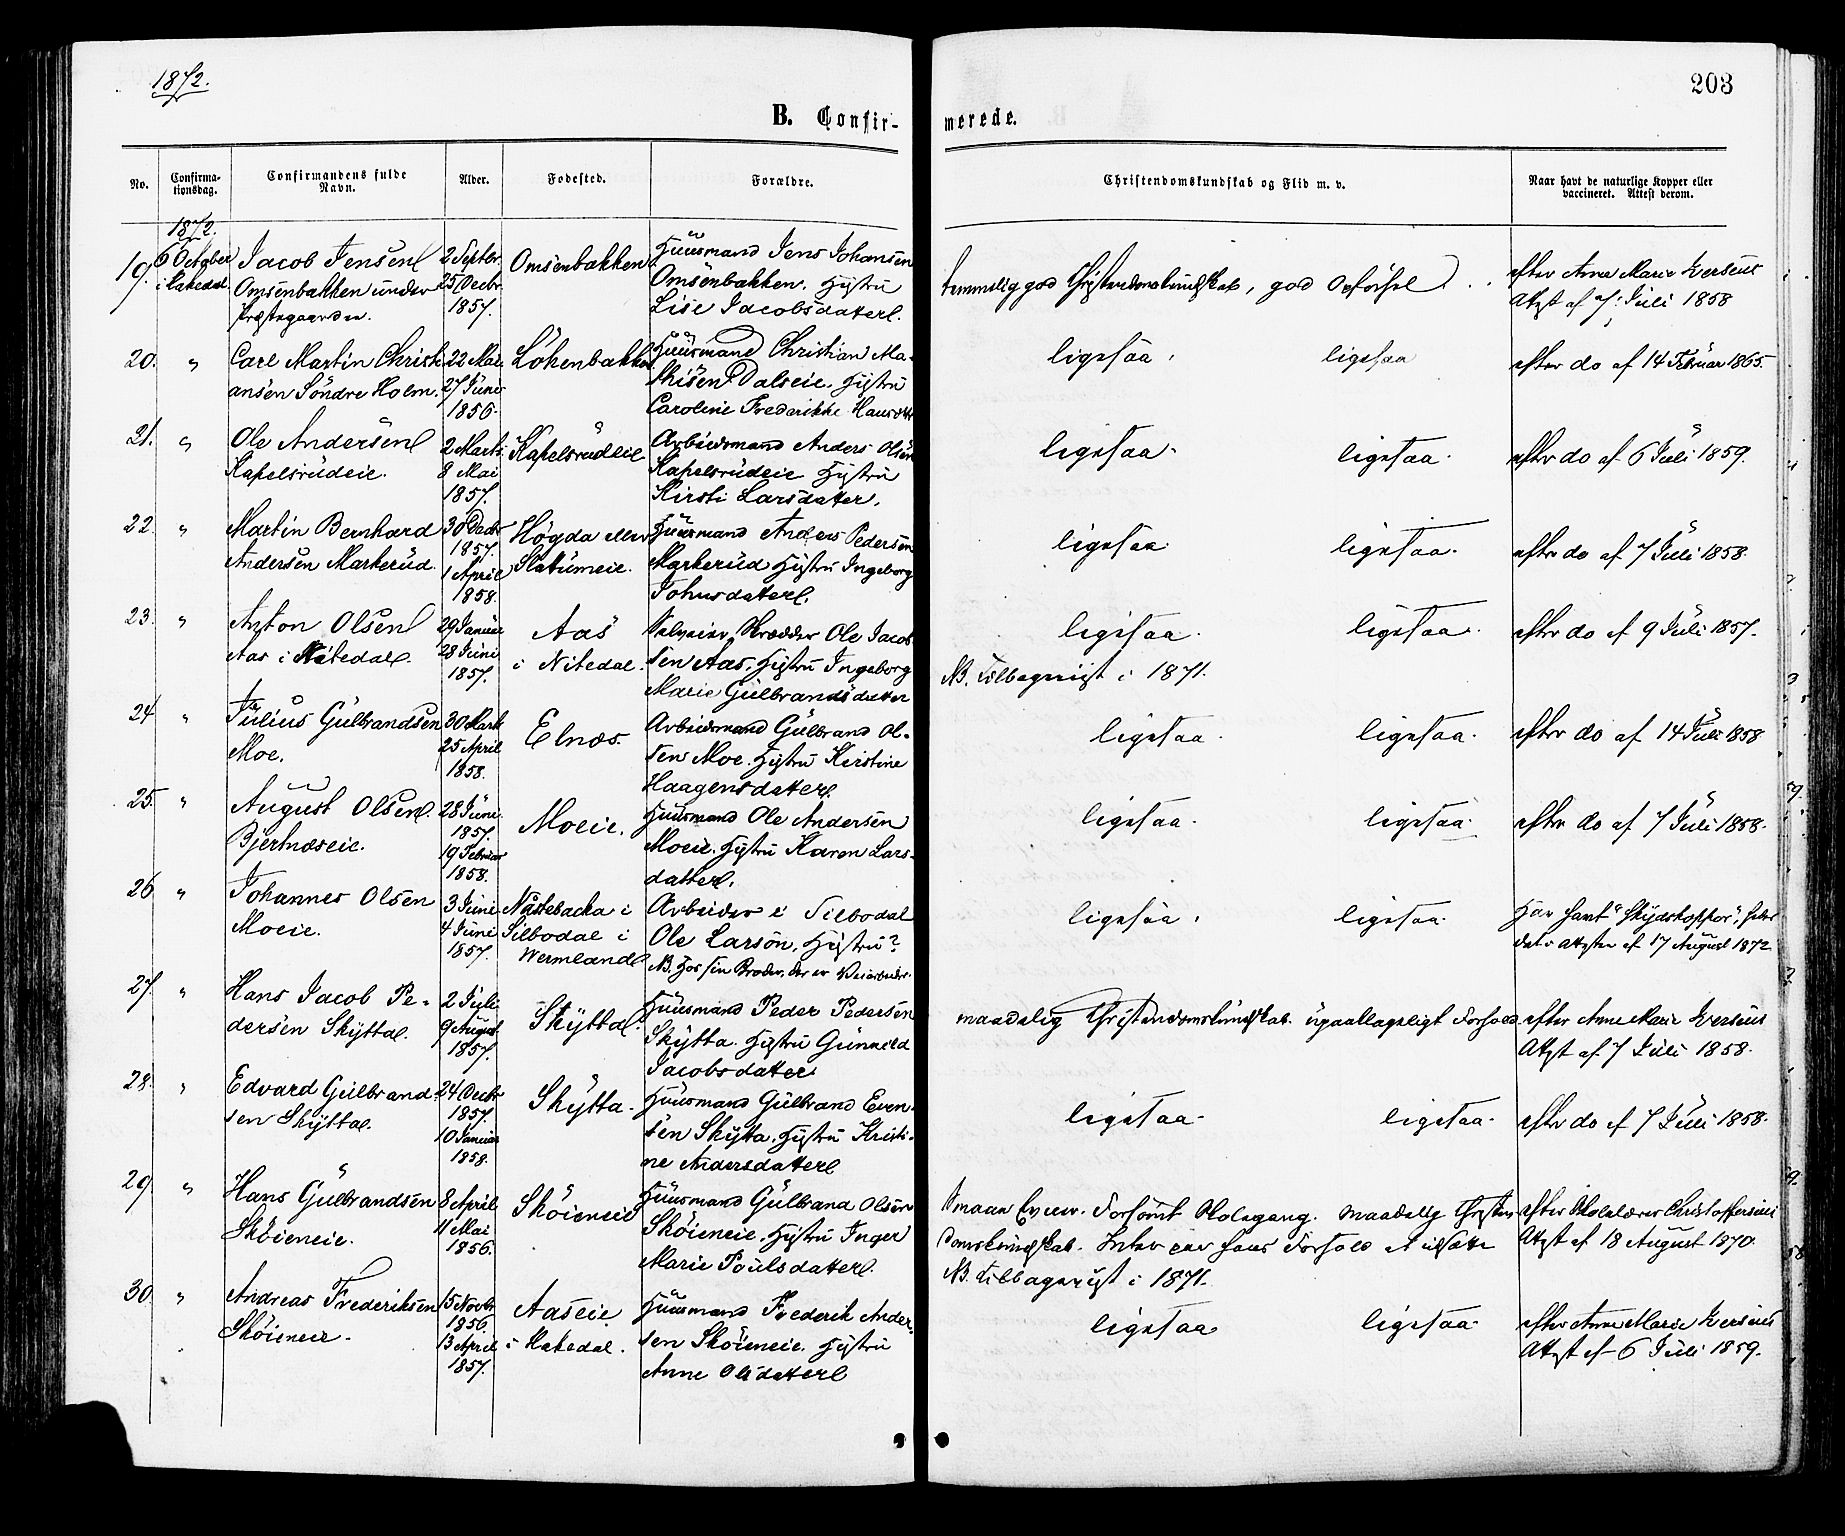 1872.
203
B. Confir-
merede.
No.
Confirma-
tionsdag.
Confirmandens fulde
Navn.
Alder.
Fødested.
Forældre.
Christendomskundskab og Flid m. v.
Naar havt de naturlige Kopper eller
vaccineret. Attest derom.
1872.
19. 6 October Jacob Jensen 2 Septbr. Omsenbakken Huusmand Jens Johansen
i Hakedal. Omsenbakken under 25 Decbr. Omsenbakken. Hustru
Præstegaarden. 1857. Lise Jacobsdatter.
temmelig god Christendomskundskab, god Opførsel. efter Anne Marie Iversens
Attest af 7 Juli 1858
20. " Carl Martin Christi- 22 Mai Løkenbakken Huusmand Christian Ma-
ansen Söndre Holm. 27 Juni thisen Dalseie. Hustru
1856. Caroline Frederikke
ligesaa. ligesaa efter do af 14 Februar 1865.
21. " Ole Andersen 2 Marts Kapelsrudeie Arbeidsmand Anders Olsen
Kapelsrudeie. 8 Mai Kapelsrudeie Hustru
1857. Kirsti Larsdatter.
ligesaa. ligesaa. efter do af 6 Juli 1859.
22. " Martin Bernhard 30 Decbr Högda eller Huusmand Anders Pedersen
Andersen Markerud. 1857. Slatumeie. Markerud Hustru Ingeborg
1 April Johnsdatter.
1858.
ligesaa. ligesaa. efter do af 7 Juli 1858.
23. " Anton Olsen 29 Januar Aas Selveier, Skrædder Ole Jacob
Aas i Nitedal. 28 Juni i Nitedal. sen Aas. Hustru Ingeborg
1857. Marie Gulbrandsdatter
ligesaa. ligesaa. efter do af 9 Juli 1857.
NB. Tilbageviist i 1871.
24 " Julius Gulbrandsen 30 Marts Elnæs. Arbeidsmand Gulbrand Ol-
Moe. 25 April sen Moe. Hustru Kirstine
1858. Haagensdatter.
ligesaa. ligesaa. efter do af 14 Juli 1858
25. " August Olsen. 28 Juni Moeie. Huusmand Ole Andersen
Bjertnæseie. 1857. Moeie. Hustru Karen Lars-
19 Februar datter.
1858.
ligesaa. ligesaa. efter do af 7 Juli 1858.
26 " Johannes Olsen 3 Juni Nästebacka i Arbeider i Silbodal
Moeie. 4 Juni Silbodal i Ole Larson, Hustru?
1857. Wermland NB. Hos sin Broder, der er Veiarbeider.
ligesaa. ligesaa. Har havt "Skydskoppor", efter
Attester af 17 August 1872
27. " Hans Jacob Pe- 2 Juli Skytta. Huusmand Peder Pedersen
dersen Skytta. 9 August Skytta. Hustru Gunnild
1857. Jacobsdatter
maadelig Christendomskundskab. upaaklageligt Forhold efter Anne Marie Iversens
Attest af 7 Juli 1858.
28. " Edvard Gulbrand- 24 Decbr Skytta. Huusmand Gulbrand Even-
sen Skytta. 1857. sen Skytta. Hustru Kristi-
10 Januar ne Andersdatter
1858.
ligesaa. ligesaa. efter do af 7 Juli 1858.
29 " Hans Gulbrandsen 8 April Sköieneie Huusmand Gulbrand Olsen
Sköieneie. 11 Mai Sköieneie. Hustru Inger
1856. Marie Poulsdatter.
Smaa Evner. Forsömt Skolegang. Maadelig Christen- efter Skolelærer Christoffersens
domskundskab. Intet paa hans Forhold at udsætte Attest af 18 August 1870.
NB. Tilbageviist i 1871.
30. " Andreas Frederiksen 15 Novbr Aaseie Huusmand Frederik Ander-
Sköieneie. 1856. i Hakedal. sen Sköieneie. Hustru
13 April Anne Olsdatter
1857.
ligesaa ligesaa. efter Anne Marie Iversens
Attest af 6 Juli 1859.